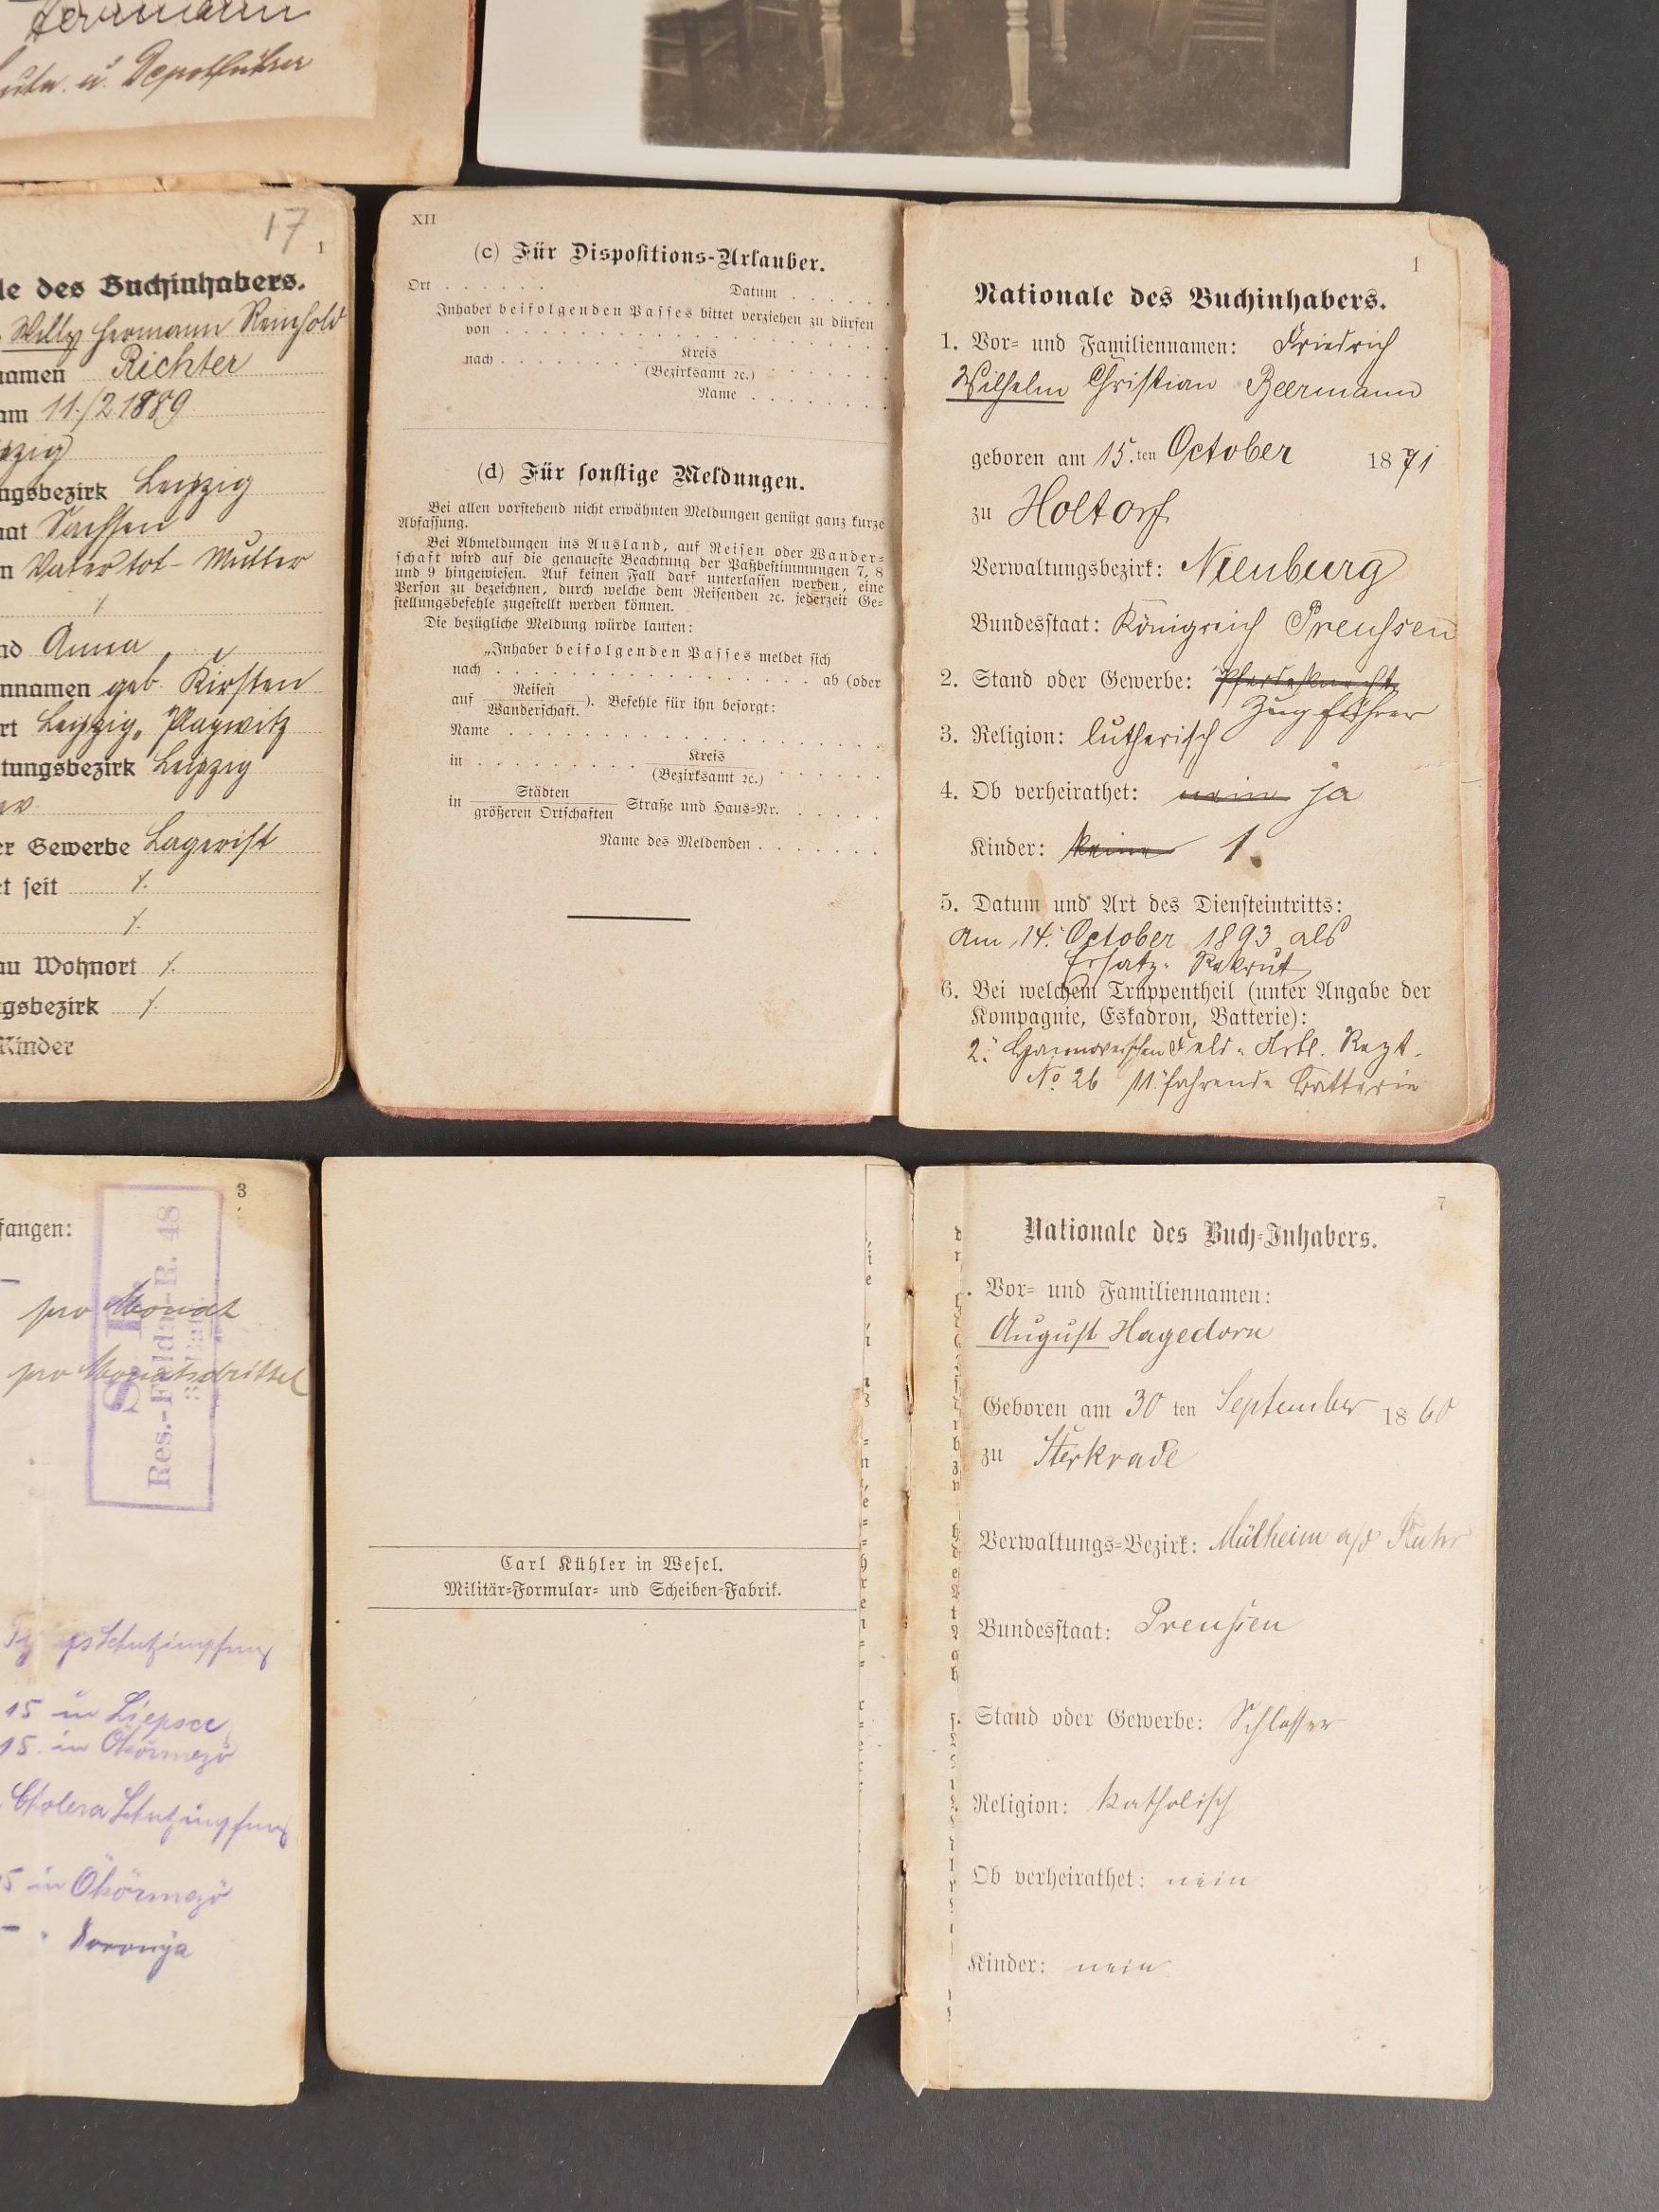 Herrmann
u. Depotführer
17
1
le des Buchinhabers.
Willy Hermann Reinhold
namen Richter
am 11./2 1889
pzig
ngsbezirk Leipzig
aat Sachsen
n Vater tot - Mutter
nd Anna
nnamen geb. Kirsten
rt Leipzig, Plagwitz
tungsbezirk Leipzig
er Gewerbe Lagerist
et seit ./.
./.
au Wohnort ./.
gsbezirk ./.
Kinder
XII
(c) Für Dispositions-Urlauber.
Ort . . . . . . Datum . . . . . .
Inhaber beifolgenden Passes bittet verziehen zu dürfen
von . . . . . . . . . . . . . . . . . .
nach . . . . . . . Kreis
(Bezirksamt ꝛc.) . . . . . . .
Name . . . . . . . .
(d) Für sonstige Meldungen.
Bei allen vorstehend nicht erwähnten Meldungen genügt ganz kurze
Abfassung.
Bei Abmeldungen ins Ausland, auf Reisen oder Wander-
schaft wird auf die genaueste Beachtung der Paßbestimmungen 7, 8
und 9 hingewiesen. Auf keinen Fall darf unterlassen werden, eine
Person zu bezeichnen, durch welche dem Reisenden ꝛc. jederzeit Ge-
stellungsbefehle zugestellt werden können.
Die bezügliche Meldung würde lauten:
„Inhaber beifolgenden Passes meldet sich
nach . . . . . . . . . . . . . . . . . ab (oder
auf Reisen
Wanderschaft. ). Befehle für ihn besorgt:
Name . . . . . . . . . . . . . . . . . .
in . . . . . . . . . Kreis
(Bezirksamt ꝛc.) . . . . . .
in Städten
größeren Ortschaften Straße und Haus-Nr. . . . . .
Name des Meldenden . . . . . . .
1
Nationale des Buchinhabers.
1. Vor- und Familiennamen: Friedrich
Wilhelm Christian Beermann
geboren am 15.ten October 1871
zu Holtorf
Verwaltungsbezirk: Nienburg
Bundesstaat: Königreich Preußen
2. Stand oder Gewerbe: Pferdeknecht
Zugführer
3. Religion: lutherisch
4. Ob verheirathet: nein ja
Kinder: keine 1.
5. Datum und Art des Diensteintritts:
Am 14. October 1893 als
Ersatz-Rekrut
6. Bei welchem Truppentheil (unter Angabe der
Kompagnie, Eskadron, Batterie):
2. Hannoverschen Feld-Artl. Regt.
No 26 11. fahrende Batterie
3
fangen:
pro Monat
pro Monatsdrittel
S. B.
Res.-Felda-R. 48
Schutzimpfung
15 in Liepsce
15. in Ökörmezö
Cholera Schutzimpfung
5 in Ökörmezö
Carl Kühler in Wesel.
Militär-Formular- und Scheiben-Fabrik.
7
Nationale des Buch-Inhabers.
Vor- und Familiennamen:
August Hagedorn
Geboren am 30 ten September 1860
zu Sterkrade
Verwaltungs-Bezirk: Mülheim a/d Ruhr
Bundesstaat: Preußen
Stand oder Gewerbe: Schlosser
Religion: katholisch
Ob verheirathet: nein
Kinder: nein